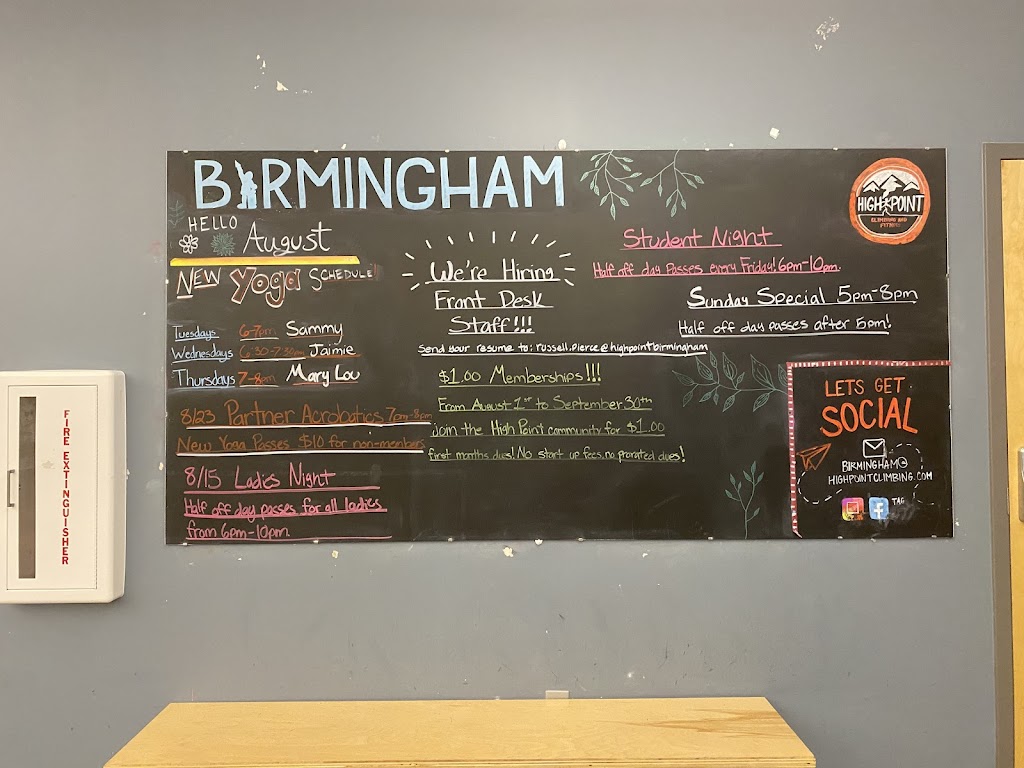 BIRMINGHAM
HELLO
August
NEW Yoga SCHEDULE
Tuesdays 6-7pm Sammy
Wednesdays 6:30-7:30pm Jaimie
Thursdays 7-8pm Mary Lou
8/23 Partner Acrobatics 7pm-8pm
New Yoga Passes $10 for non-members
8/15 Ladies Night
Half off day passes for all ladies
from 6pm-10pm
We're Hiring
Front Desk
Staff!!!
Send your resume to: russell.pierce@highpointbirmingham
$1.00 Memberships!!!
From August 1st to September 30th
Join the High Point community for $1.00
first months dues! No start up fees, no prorated dues!
HIGH POINT
CLIMBING AND
FITNESS
Student Night
Half off day Passes every Friday! 6pm-10pm.
Sunday Special 5pm-8pm
Half off day passes after 5pm!
LETS GET
SOCIAL
BIRMINGHAM@
HIGHPOINTCLIMBING.COM
TAG
FIRE EXTINGUISHER